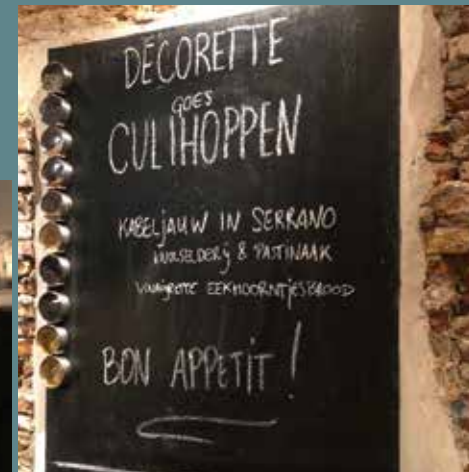 DÉCORETTE
GOES
CULIHOPPEN
KABELJAUW IN SERRANO
KNOLSELDERIJ & PASTINAAK
VINAIGRETTE EEKHOORNTJESBROOD
BON APPETIT!